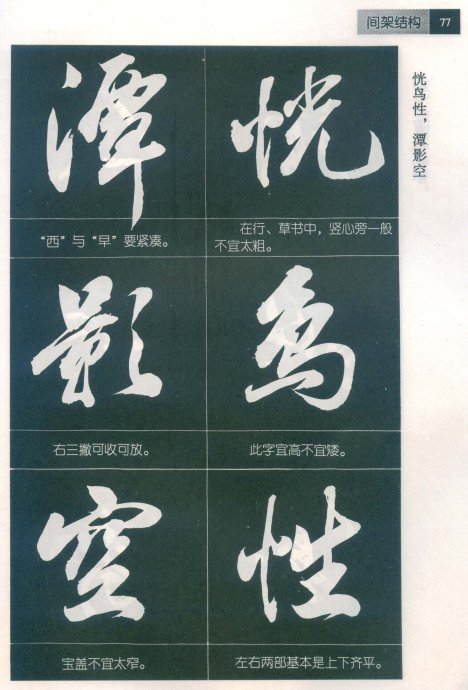 间架结构 77
恍鸟性，潭影空
恍
在行、草书中，竖心旁一般
不宜太粗。
鸟
此字宜高不宜矮。
性
左右两部基本是上下齐平。
潭
“西”与“早”要紧凑。
影
右三撇可收可放。
空
宝盖不宜太窄。